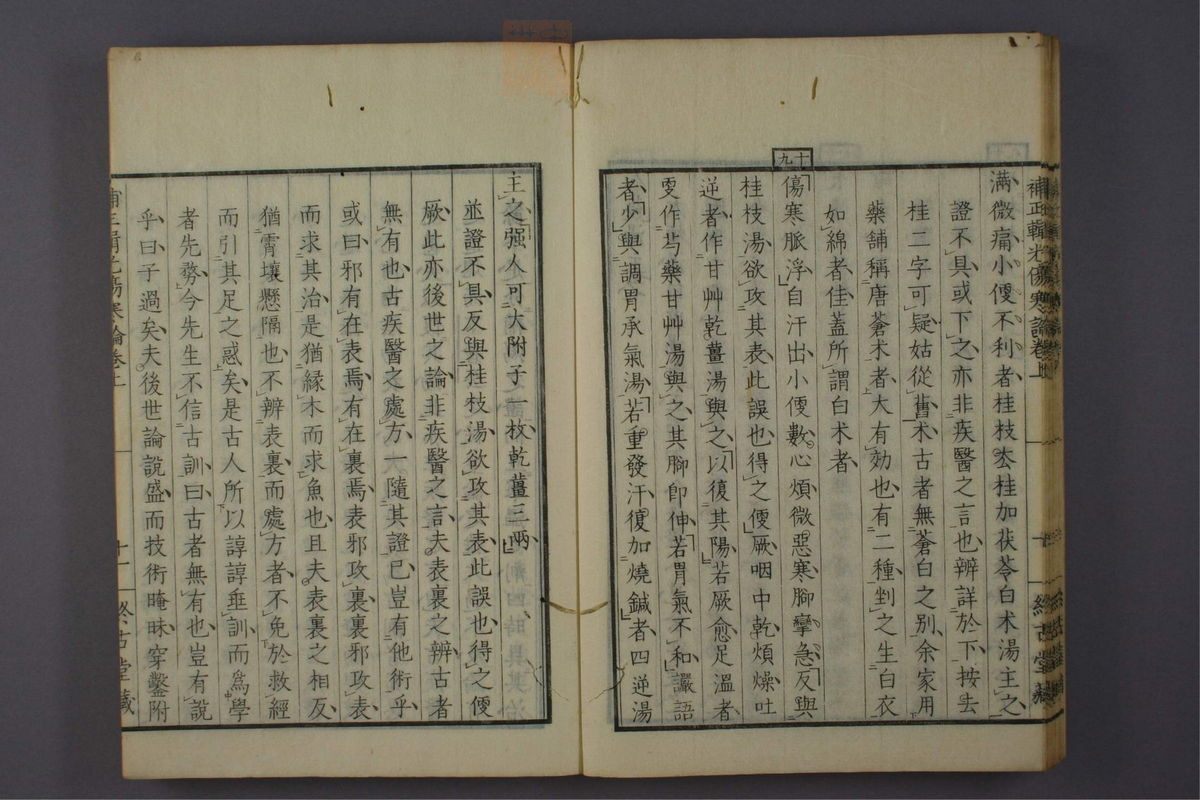 補正輯光傷寒論卷上
滿微痛小便不利者桂枝去桂加茯苓白朮湯主之
證不具或下之亦非疾醫之言也辨詳於下按去
桂二字可疑姑從舊朮古者無蒼白之别余家用
藥舖稱唐蒼朮者大有効也有二種剉之生白衣
如綿者佳蓋所謂白朮者
十九
傷寒脈浮自汗出小便數心煩微惡寒脚攣急反與
桂枝湯欲攻其表此誤也得之便厥咽中乾煩燥吐
逆者作甘艸乾薑湯與之以復其陽若厥愈足溫者
更作芍藥甘艸湯與之其脚卽伸若胃氣不和讝語
者少與調胃承氣湯若重發汗復加燒鍼者四逆湯
主之强人可大附子一枚乾薑三兩
並證不具反與桂枝湯欲攻其表此誤也得之便
厥此亦後世之論非疾醫之言夫表裏之辨古者
無有也古疾醫之處方一隨其證已豈有他術乎
或曰邪有在表焉有在裏焉表邪攻裏裏邪攻表
而求其治是猶緣木而求魚也且夫表裏之相反
猶霄壤懸隔也不辨表裏而處方者不免於救經
而引其足之惑矣是古人所以諄諄垂訓而爲學
者先務今先生不信古訓曰古者無有也豈有說
乎曰子過矣夫後世論說盛而技術晻昧穿鑿附
補正輯光傷寒論卷上
十一
終古堂藏